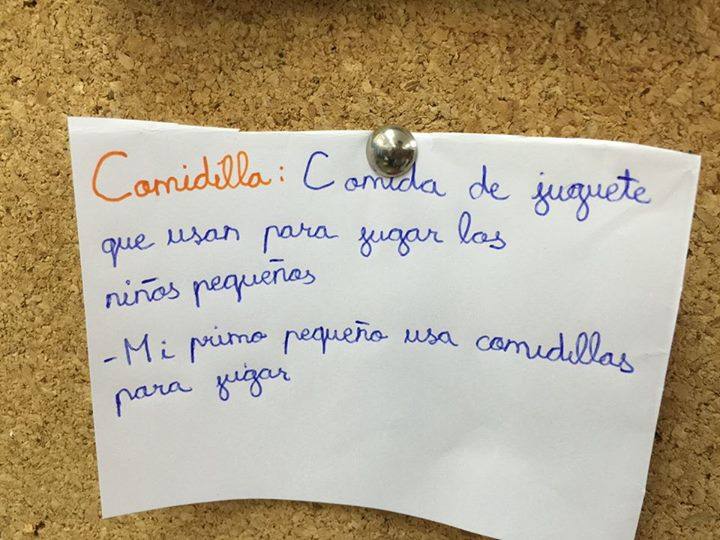 Comidilla: Comida de juguete
que usan para jugar los
niños pequeños
-Mi primo pequeño usa comidillas
para jugar